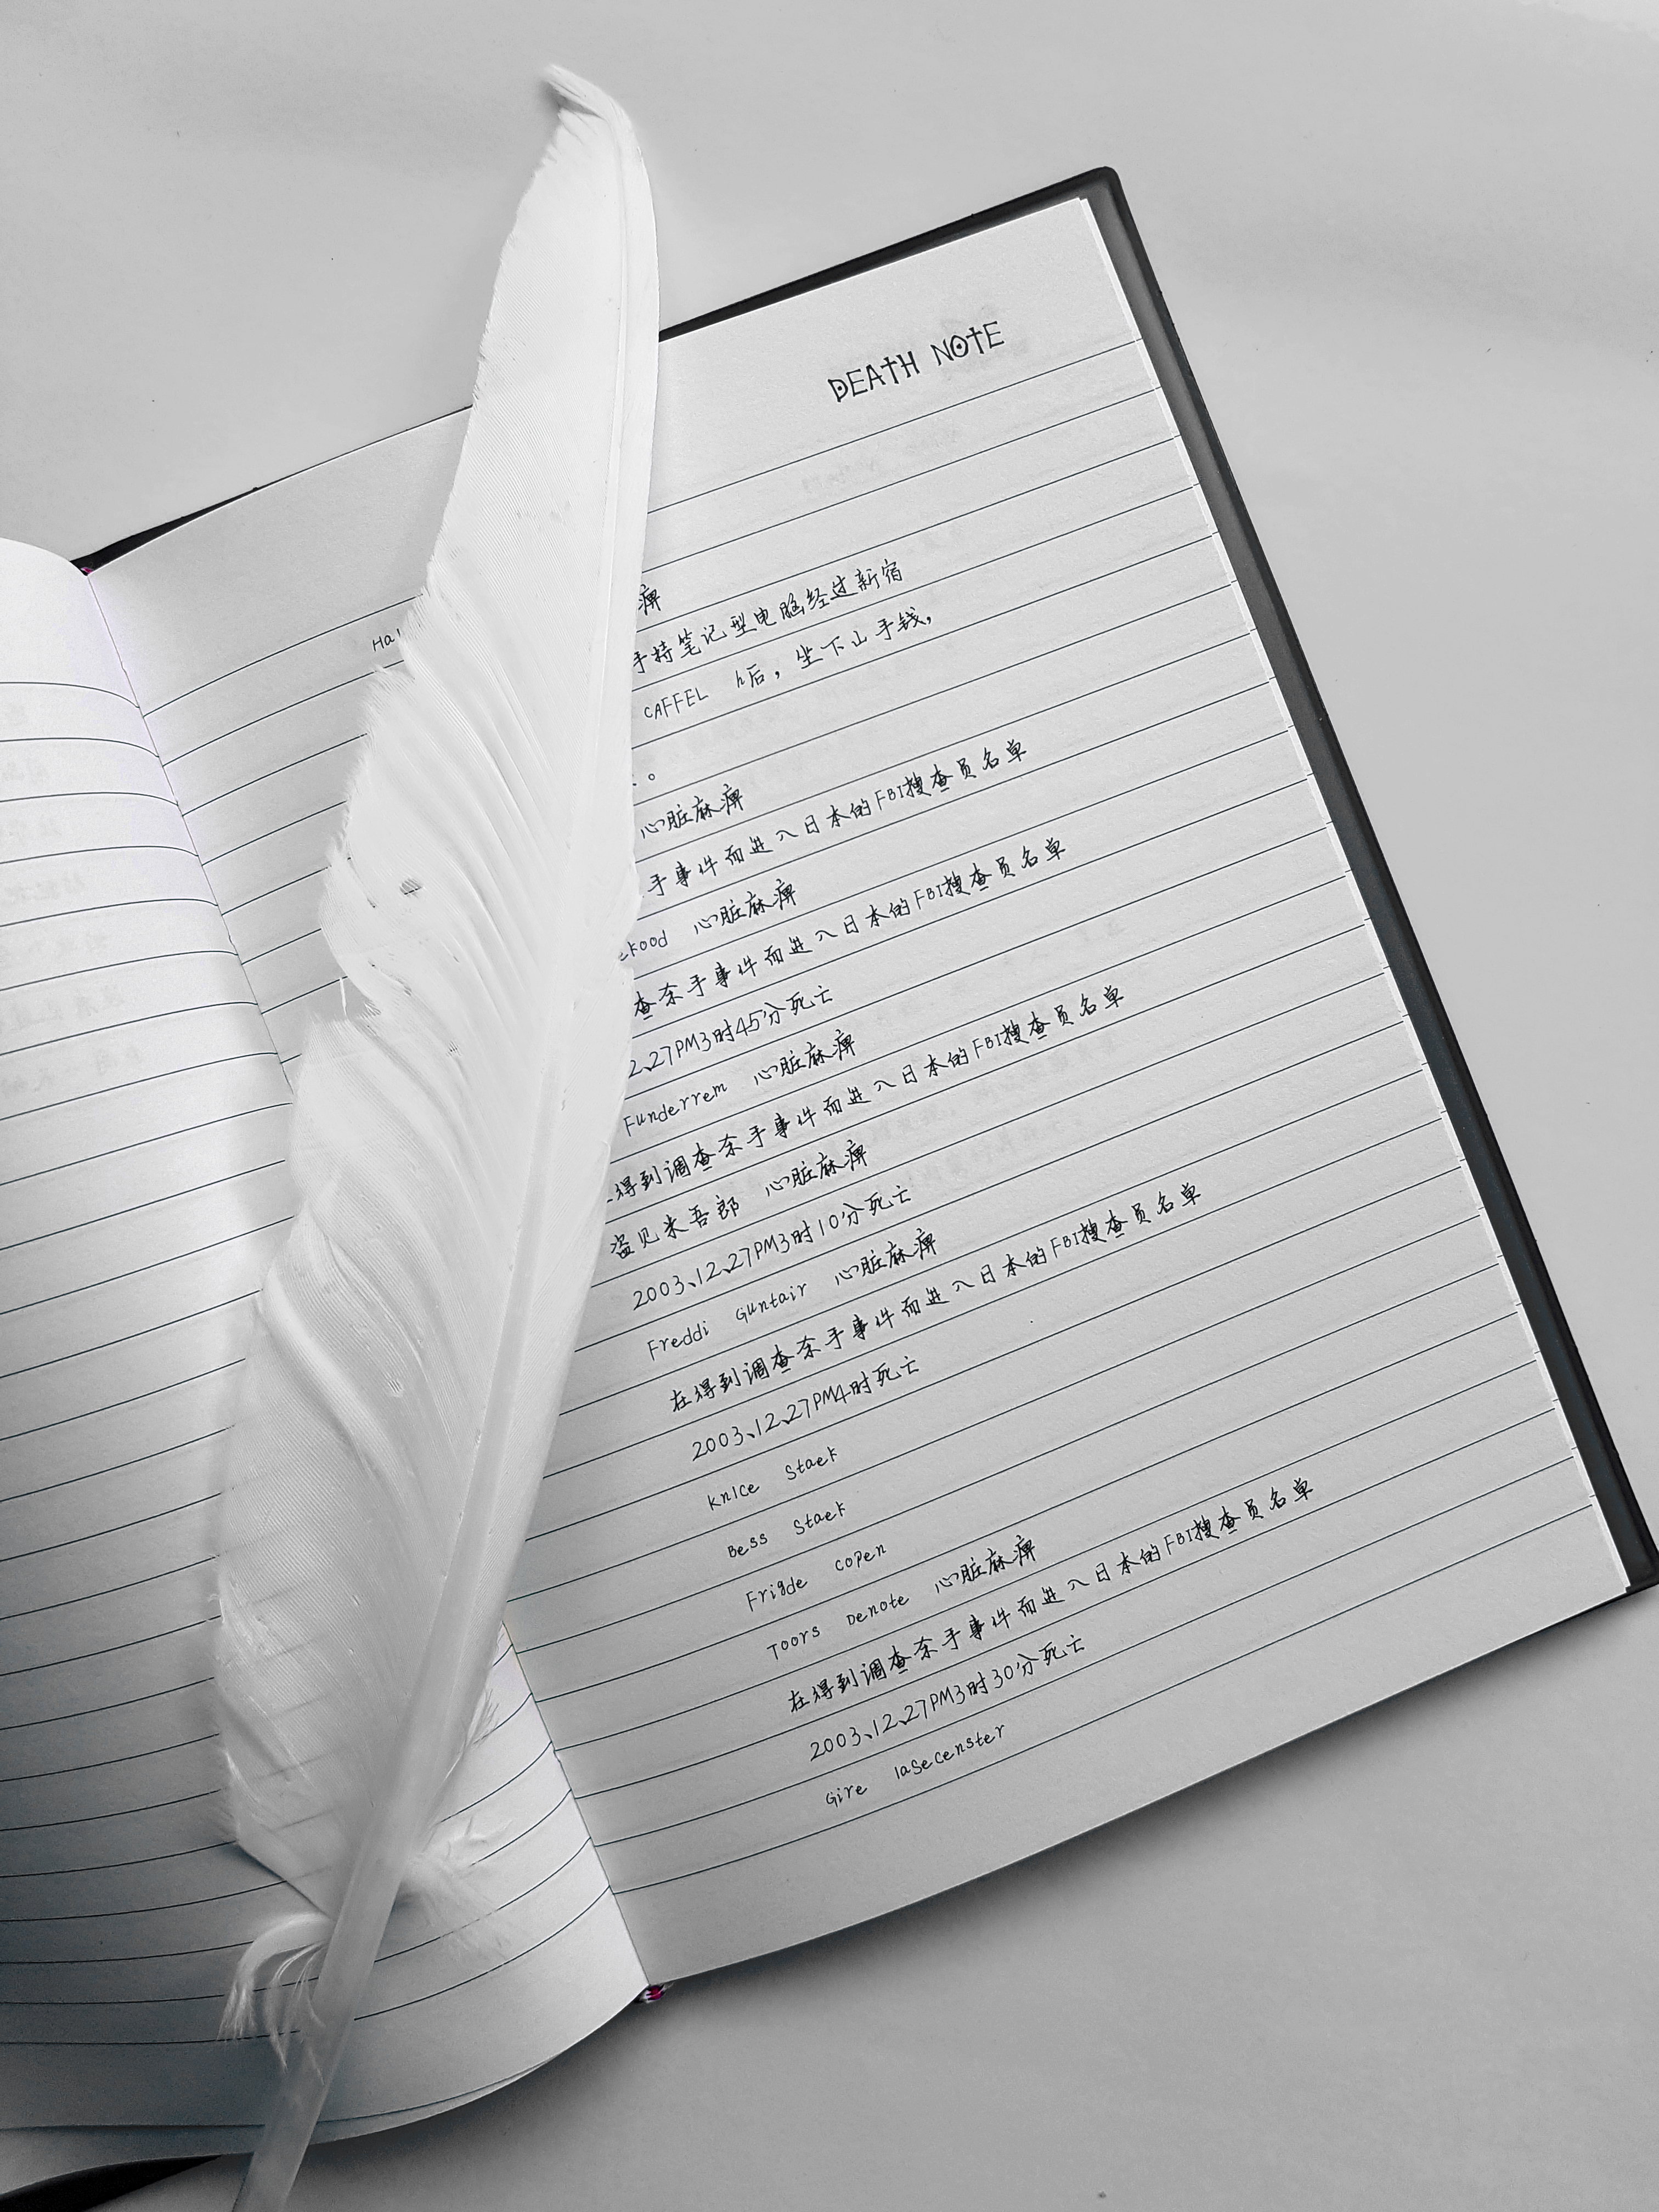 DEATH NOTE
Ha
痹
手持笔记型电脑经过新宿
CAFFEL h后，坐下山手钱，
。
心脏麻痹
手事件而进入日本的FBI搜查员名单
ekood 心脏麻痹
查杀手事件而进入日本的FBI搜查员名单
2、27PM3时45分死亡
Funderrem 心脏麻痹
得到调查杀手事件而进入日本的FBI搜查员名单
盗见米吾郎 心脏麻痹
2003、12、27PM3时10分死亡
Freddi Guntair 心脏麻痹
在得到调查杀手事件而进入日本的FBI搜查员名单
2003、12、27PM4时死亡
Knice Staek
Bess Staek
Frigde copen
Toors Denote 心脏麻痹
在得到调查杀手事件而进入日本的FBI搜查员名单
2003、12、27PM3时30分死亡
Gire lasecenster